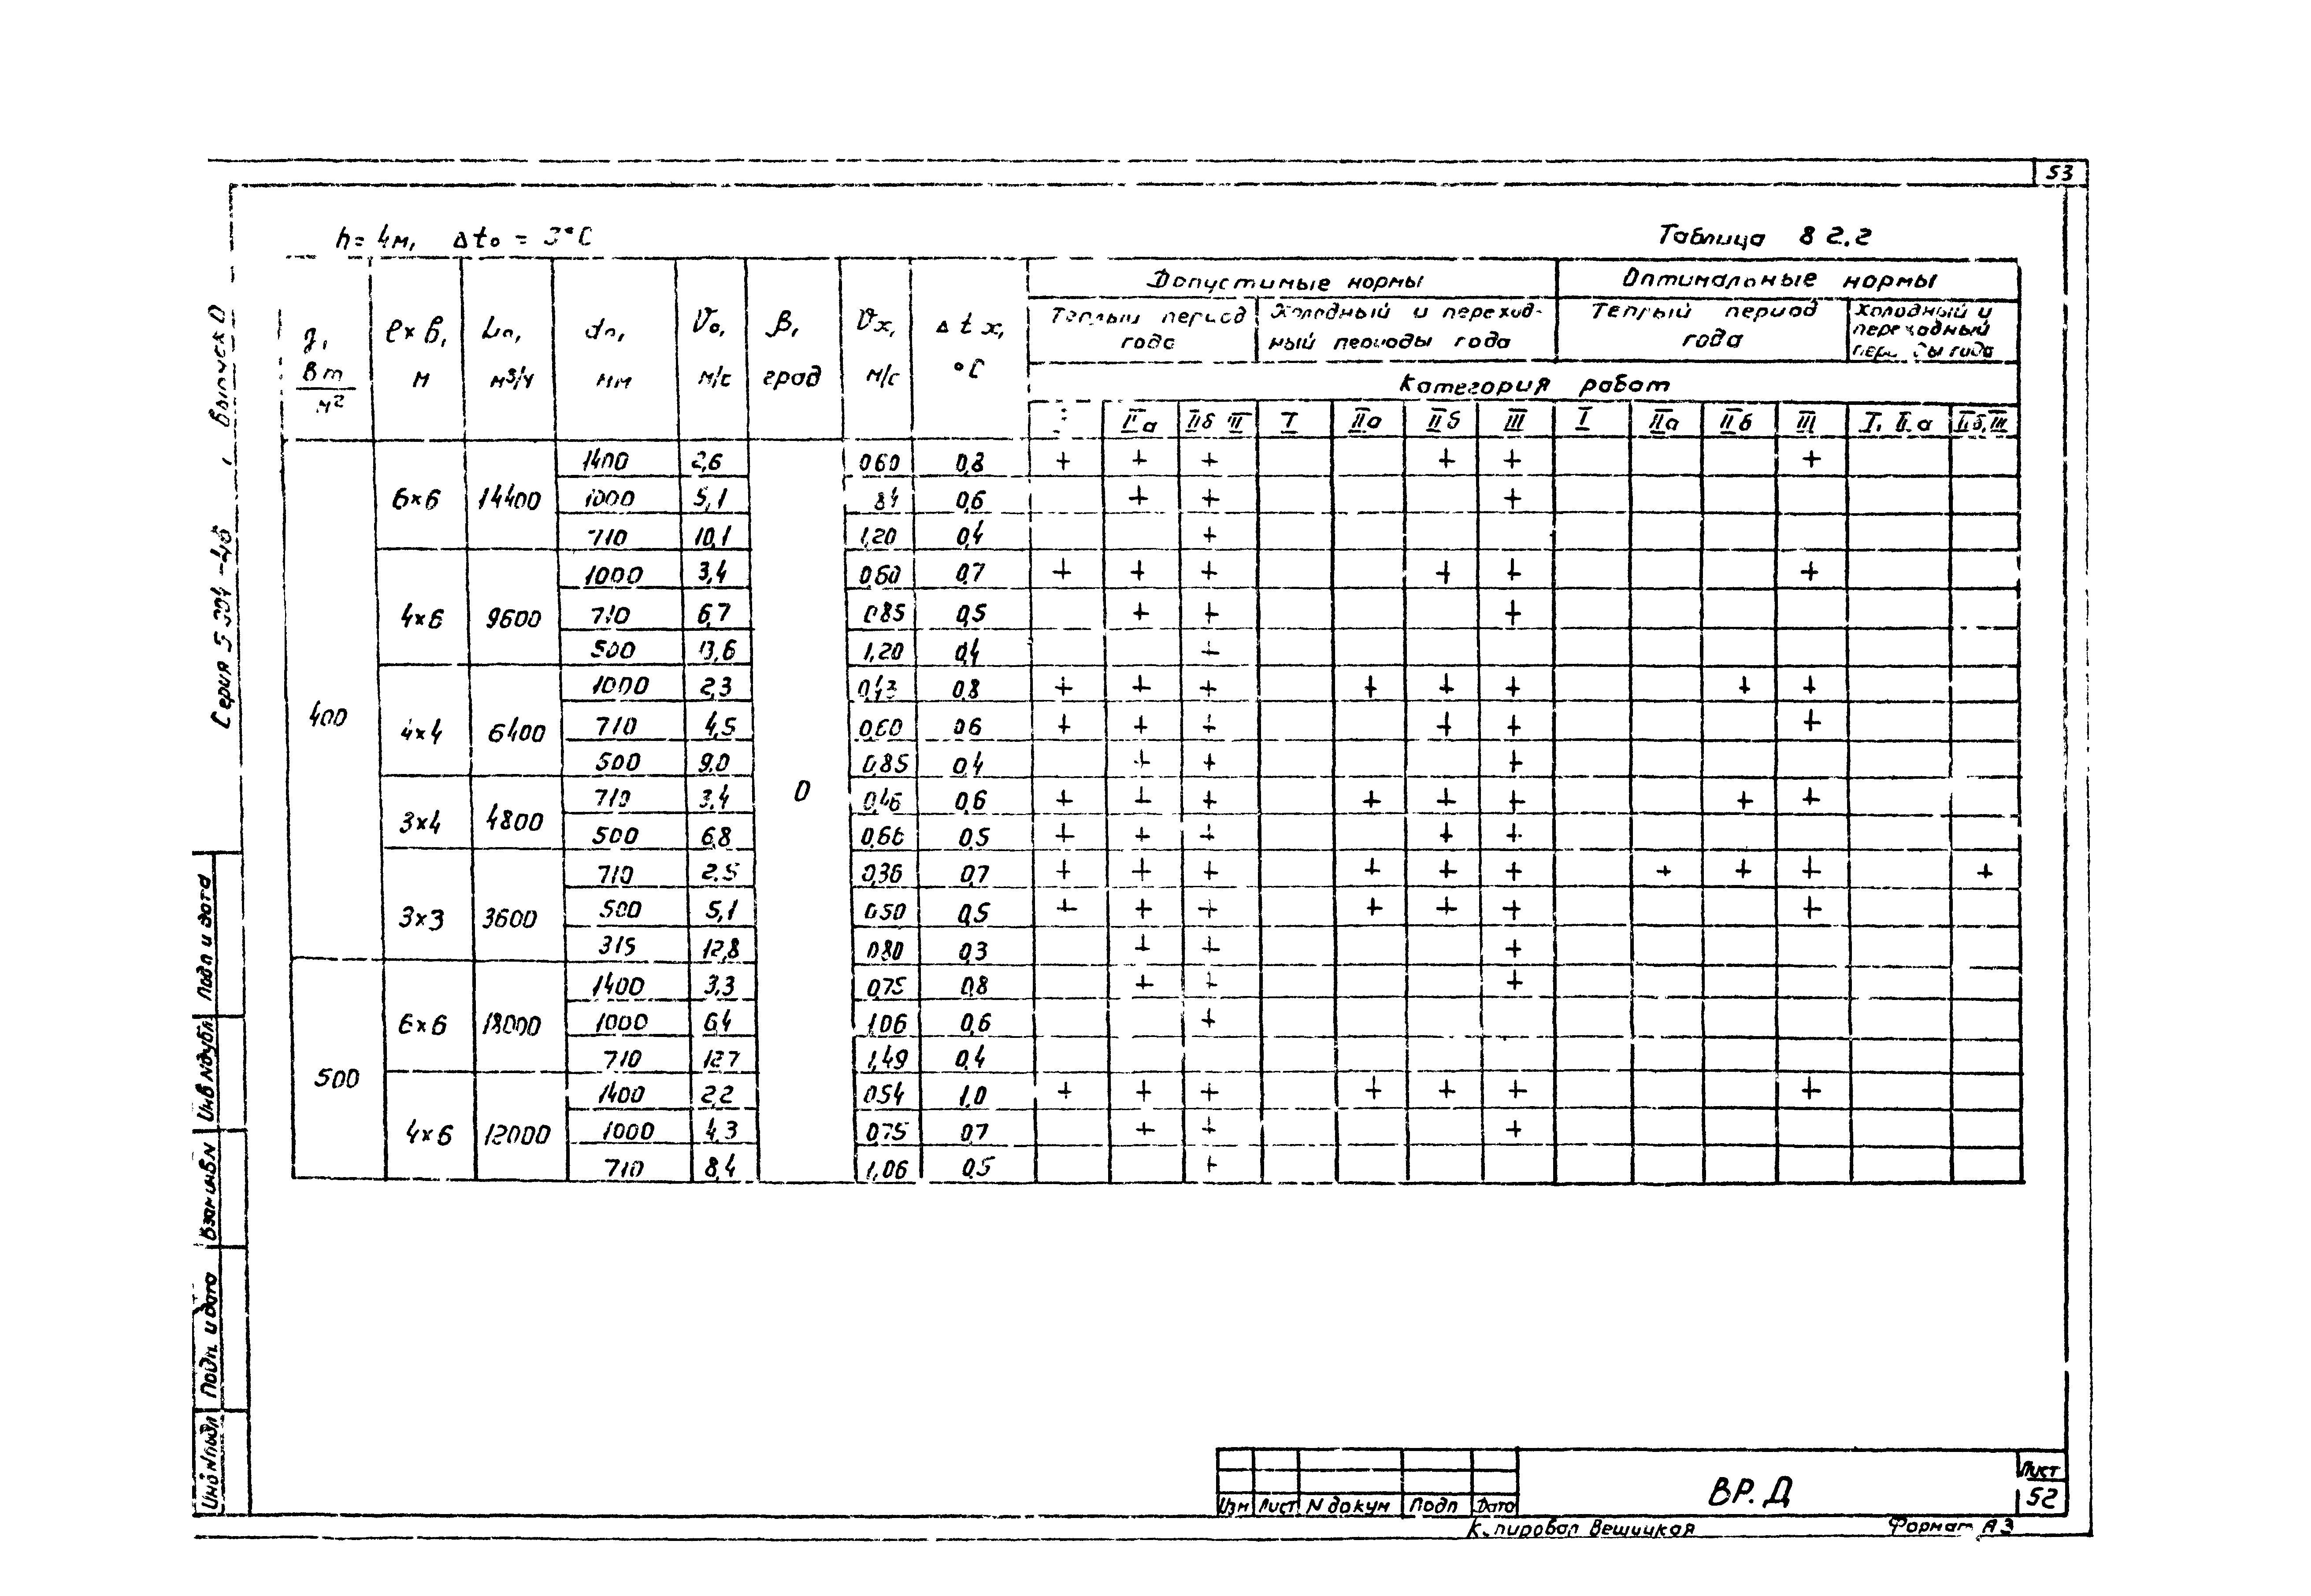 53
h= 4м, Δto = 3°С
Таблица 8 2.2
Допустимые нормы Оптимальные нормы
q, Вт/м² ℓ×в, м Lo, м³/ч do, мм Vo, м/с β, град Vx, м/с Δtx, °С
Теплый период года Холодный и переходный периоды года Теплый период года Холодный и переходный периоды года
Категория работ
IIа IIб III I IIа IIб III I IIа IIб III I, IIа IIб, III
400 6×6 14400 1400 2,6 0 0,60 0,8 + + + + + +
1000 5,1 84 0,6 + + +
710 10,1 1,20 0,4 +
4×6 9600 1000 3,4 0,60 0,7 + + + + + +
710 6,7 0,85 0,5 + + +
500 13,6 1,20 0,4 +
4×4 6400 1000 2,3 0,43 0,8 + + + + + + + +
710 4,5 0,60 0,6 + + + + + +
500 9,0 0,85 0,4 + + +
3×4 4800 710 3,4 0,46 0,6 + + + + + + + +
500 6,8 0,66 0,5 + + + + +
3×3 3600 710 2,5 0,36 0,7 + + + + + + + + + +
500 5,1 0,50 0,5 + + + + + + +
315 12,8 0,80 0,3 + + +
500 6×6 18000 1400 3,3 0,75 0,8 + + +
1000 6,4 1,06 0,6 +
710 12,7 1,49 0,4
4×6 12000 1400 2,2 0,54 1,0 + + + + + + +
1000 4,3 0,75 0,7 + + +
710 8,4 1,06 0,5 +
Серия 5.904-48, выпуск 0
Подп и дата
Инв N дубл
Взам инв N
Подп. и дата
Инв N подл
Изм Лист N докум Подп Дата
ВР.Д
Лист
52
Копировал Вешицкая
Формат А3